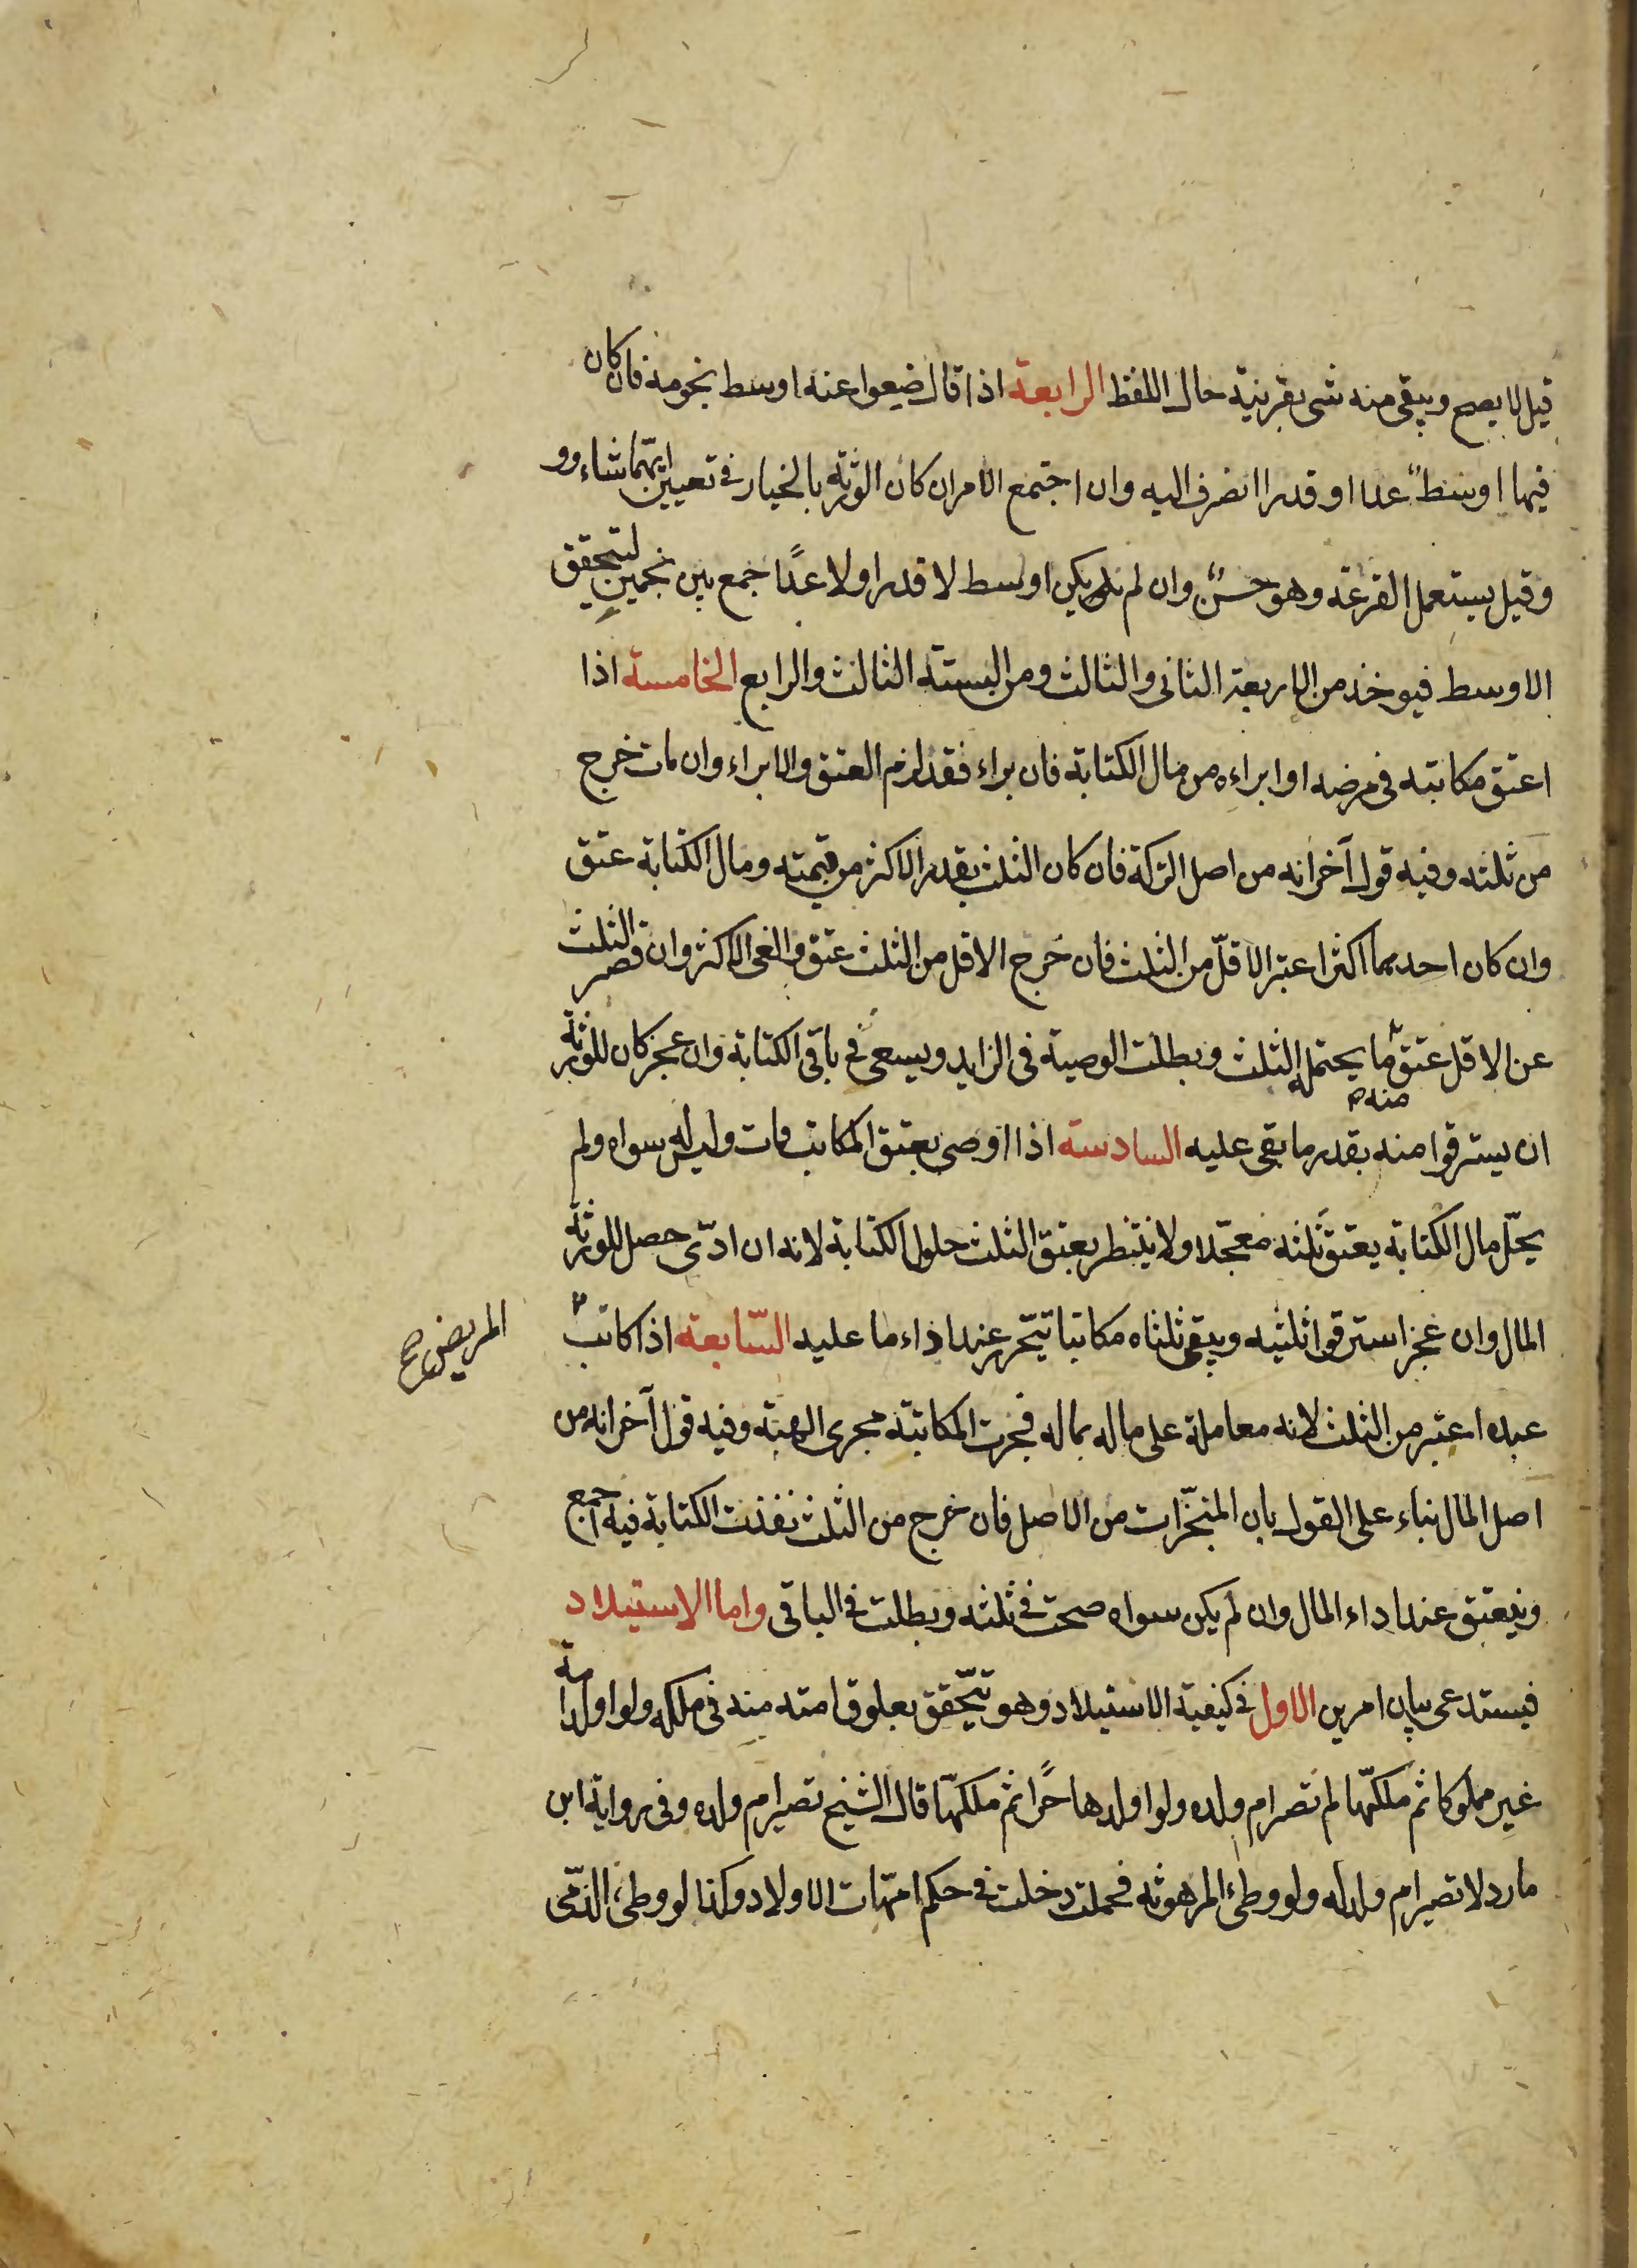 قيل لا يصح ويبقى منه شى بقرينة حال اللفظ الرابعة اذا قال ضعوا عنه اوسط نجومه فان كان
فيها اوسط عددا او قدرا انصرف اليه وان اجتمع الامران كان الورثة بالخيار فى تعيين ايهما شاءوو
وقيل يستعمل القرعة وهو حسن وان لم يكن اوسط لا قدرا ولا عددا جمع بين نجمين لتحقق
الاوسط فيوخذ من الاربعة الثانى والثالث ومن الستة الثالث والرابع الخامسة اذا
اعتق مكاتبه فى مرضه او ابراءه من مال الكتابة فان براء فقد لزم العتق والابراء وان مات خرج
من ثلثه وفيه قول آخر انه من اصل التركة فان كان الثلث بقدر الاكثر من قيمته ومال الكتابة عتق
وان كان احديهما اكثر اعتبر الاقلّ من الثلث فان خرج الاقل من الثلث عتق والغى الاكثر وان قصر الثلث
عن الاقل عتق منه ما يحتمله الثلث وبطلت الوصية فى الزايد ويسعى فى باقى الكتابة وان عجز كان للورثة
ان يسترقوا منه بقدر ما بقى عليه السادسة اذا اوصى بعتق المكاتب ومات وليس له سواه ولم
يحلّ مال الكتابة يعتق ثلثه معجّلا ولا ينتظر بعتق الثلث حلول الكتابة لانه ان ادّى حصل للورثة
المال وان عجز استرقوا ثلثيه ويبقى ثلثاه مكاتبا يتحرر عند اداء ما عليه السّابعة اذا كاتب
المريض صح
عبده اعتبر من الثلث لانه معاملة على ماله بماله فجرت المكاتبة مجرى الهبة وفيه قول آخر انه من
اصل المال بناء على القول بان المنجّزات من الاصل فان خرج من الثلث نفذت الكتابة فيه اجمع
وينعتق عند اداء المال وان لم يكن سواه صحت فى ثلثه وبطلت فى الباقى واما الاستيلاد
فيستدعى بيان امرين الاول فى كيفية الاستيلاد وهو يتحقق بعلوق امته منه فى ملكه ولو اولد امة
غير مملوكا ثم ملكها لم تصر ام ولده ولو اولدها حرًا ثم ملكها قال الشيخ تصير ام ولده وفى رواية ابن
مارد لا تصير ام ولد له ولو وطئ المرهونة فحملت دخلت فى حكم امّهات الاولاد وكذا لو وطئ الذمّى